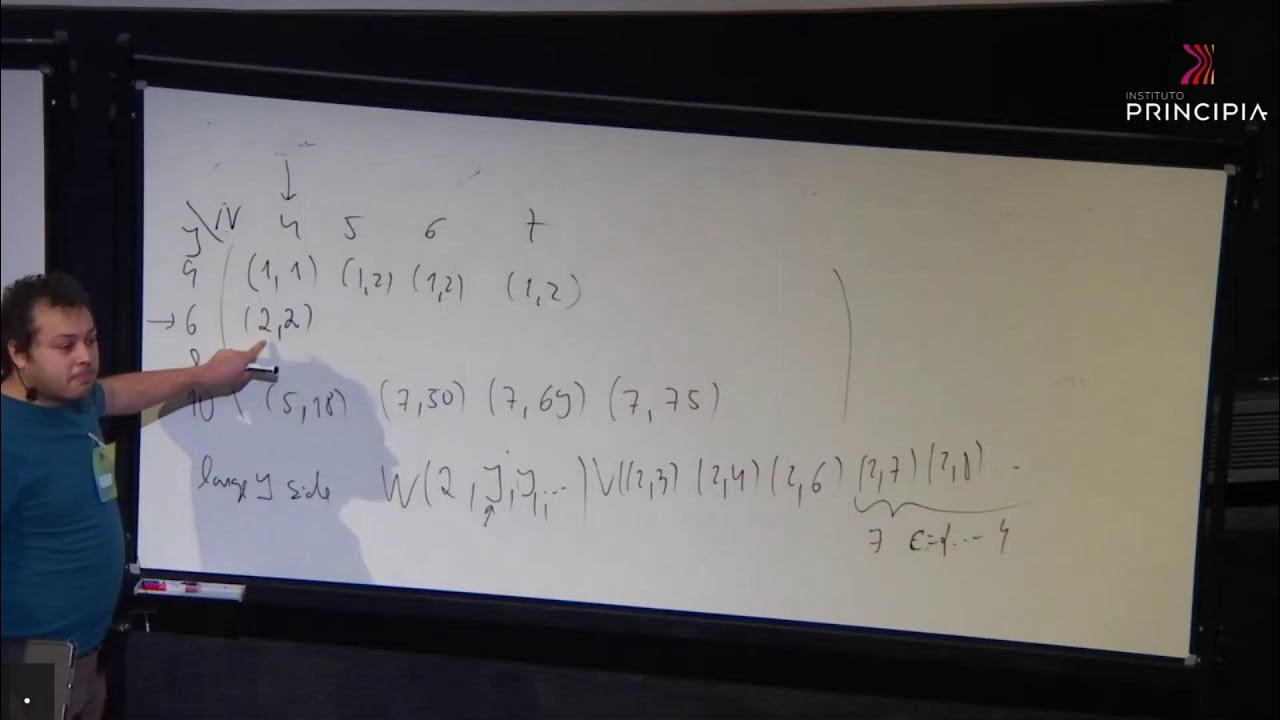 INSTITUTO
PRINCIPIA
y\N 4 5 6 7
4 (1,1) (1,2) (1,2) (1,2)
→ 6 (2,2)
8
10 (5,18) (7,30) (7,69) (7,75)
large y side W(2, y, y, ...) V((2,3) (2,4) (2,6) (2,7) (2,8) ...
7